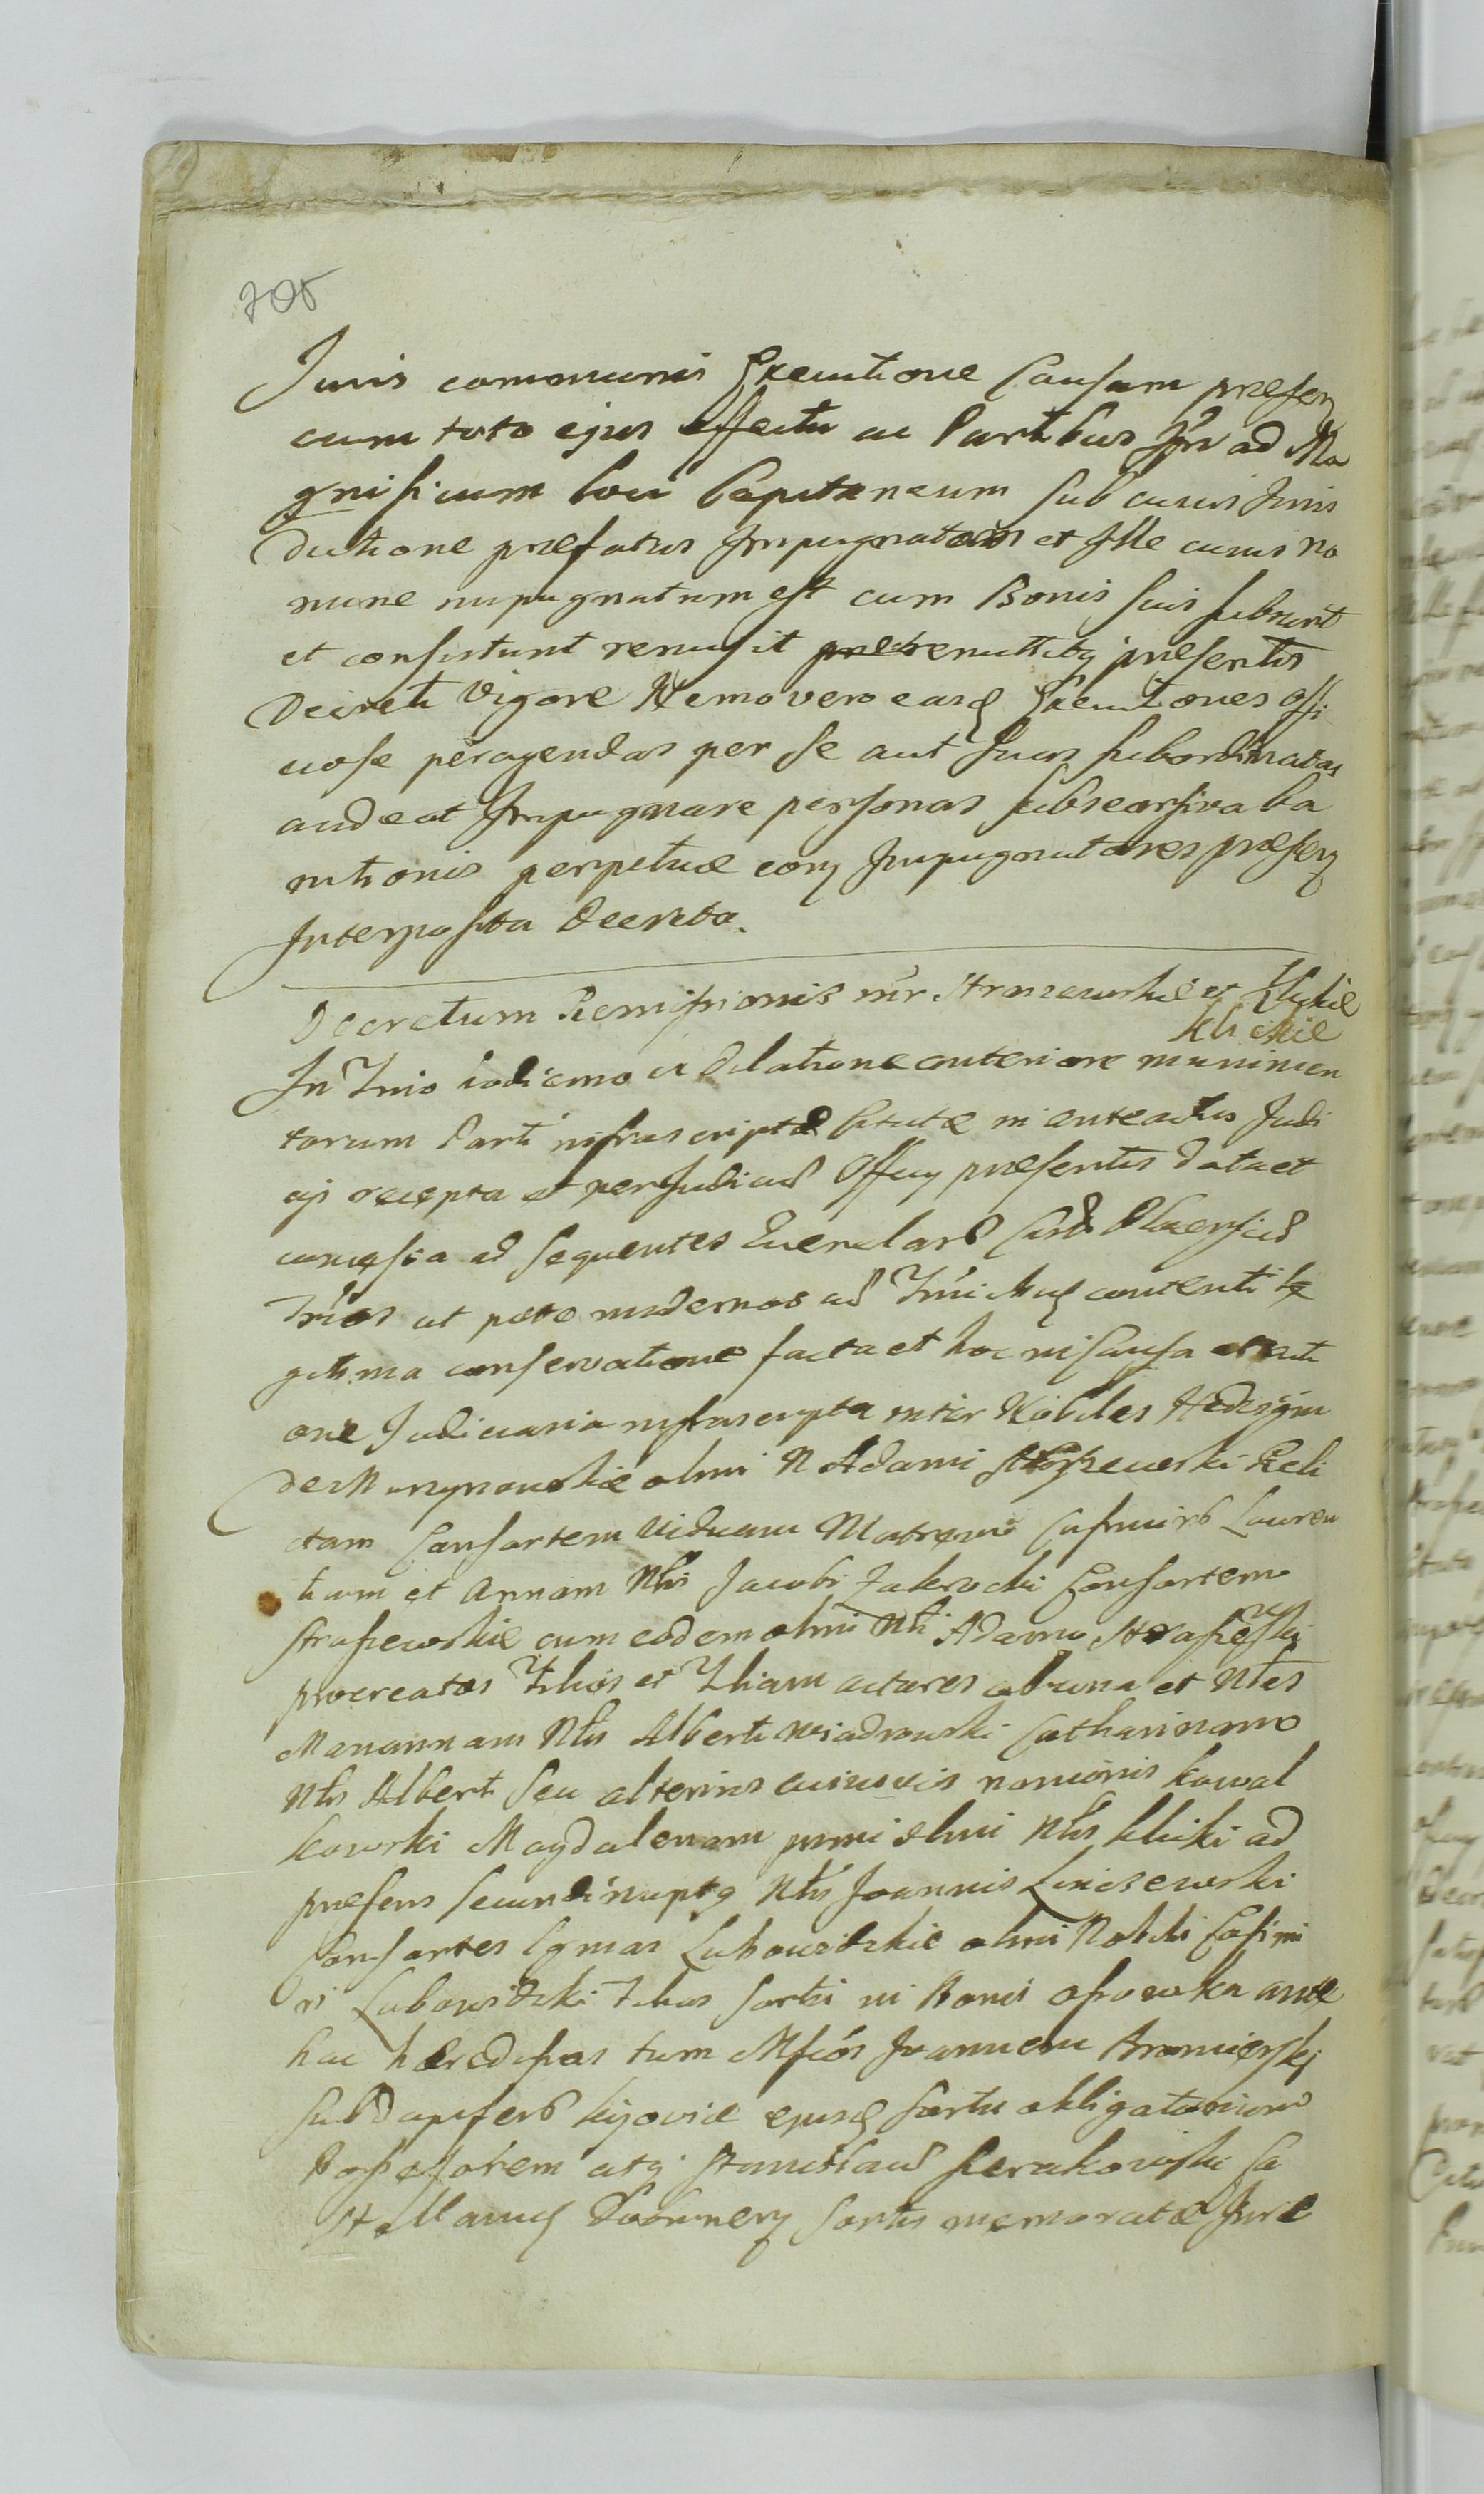 705
Juris communis Executione Causam praesen
cum toto ejus effectu ac Partibus Jfris ad Ma
gnificum loci Capitaneum sub cuius Juris
dictione praefatus Impugnatores et Ille cuius no
mine impugnatum est cum Bonis suis subsunt
et consistunt remisit remittitq praesentis
Decreti vigore Nemo vero easq Executiones offi
ciose peragendas per se aut suas subordinatas
audeat Impugnare personas sub rescissiva ba
nitionis perpetuae conq Impugnatores praesenq
Interposita decreta.
Decretum Remissionis intr Straszewskie et
Klickie
In Tmio hodierno ex dilatione anteriore munimen
torum Parti infrascriptae citatae in anteactis Judi
cijs recepta et per Judicium Offej praesentis data et
concessa ad sequentes
Tmos ut puto modernos ad Tmi contenti le
gitima conservatione facta et hoc in Causa et acti
one Judiciaria infrascripta inter Nobiles Hedvigim
de olim N Adami Straszewski Reli
ctam Consortem viduam Matrem Casimirum Lauren
tium et Annam Nlis Jacobi Zakrocki Consortem
Straszewskie cum eodem olim Nli Adamo Straszewski
procreatos Filios et Filiam actores ab una et Nles
Mariannam Nlis Alberti Wiadrowski Catharinam
Nlis Albert seu alterius cuiusvis nominis Kowal
kowski Magdalenam primi olim Nlis Klicki ad
praesens secundi nuptq Nlis Joannis Liniczewski
Consortes Cgmas Lubowidzkie olim Nobilis Casimi
ri Lubowidzki Filias sortis in Bonis Opowka ante
hac haeredissas tum Mficos Joannem Bromierskj
Subdapiferum Kijoviae ejusq sortis obligatorium
Possessorem atq Stanislaum Sierakowski Ca
stellanuq Dobrinenq sortis memoratae Jure